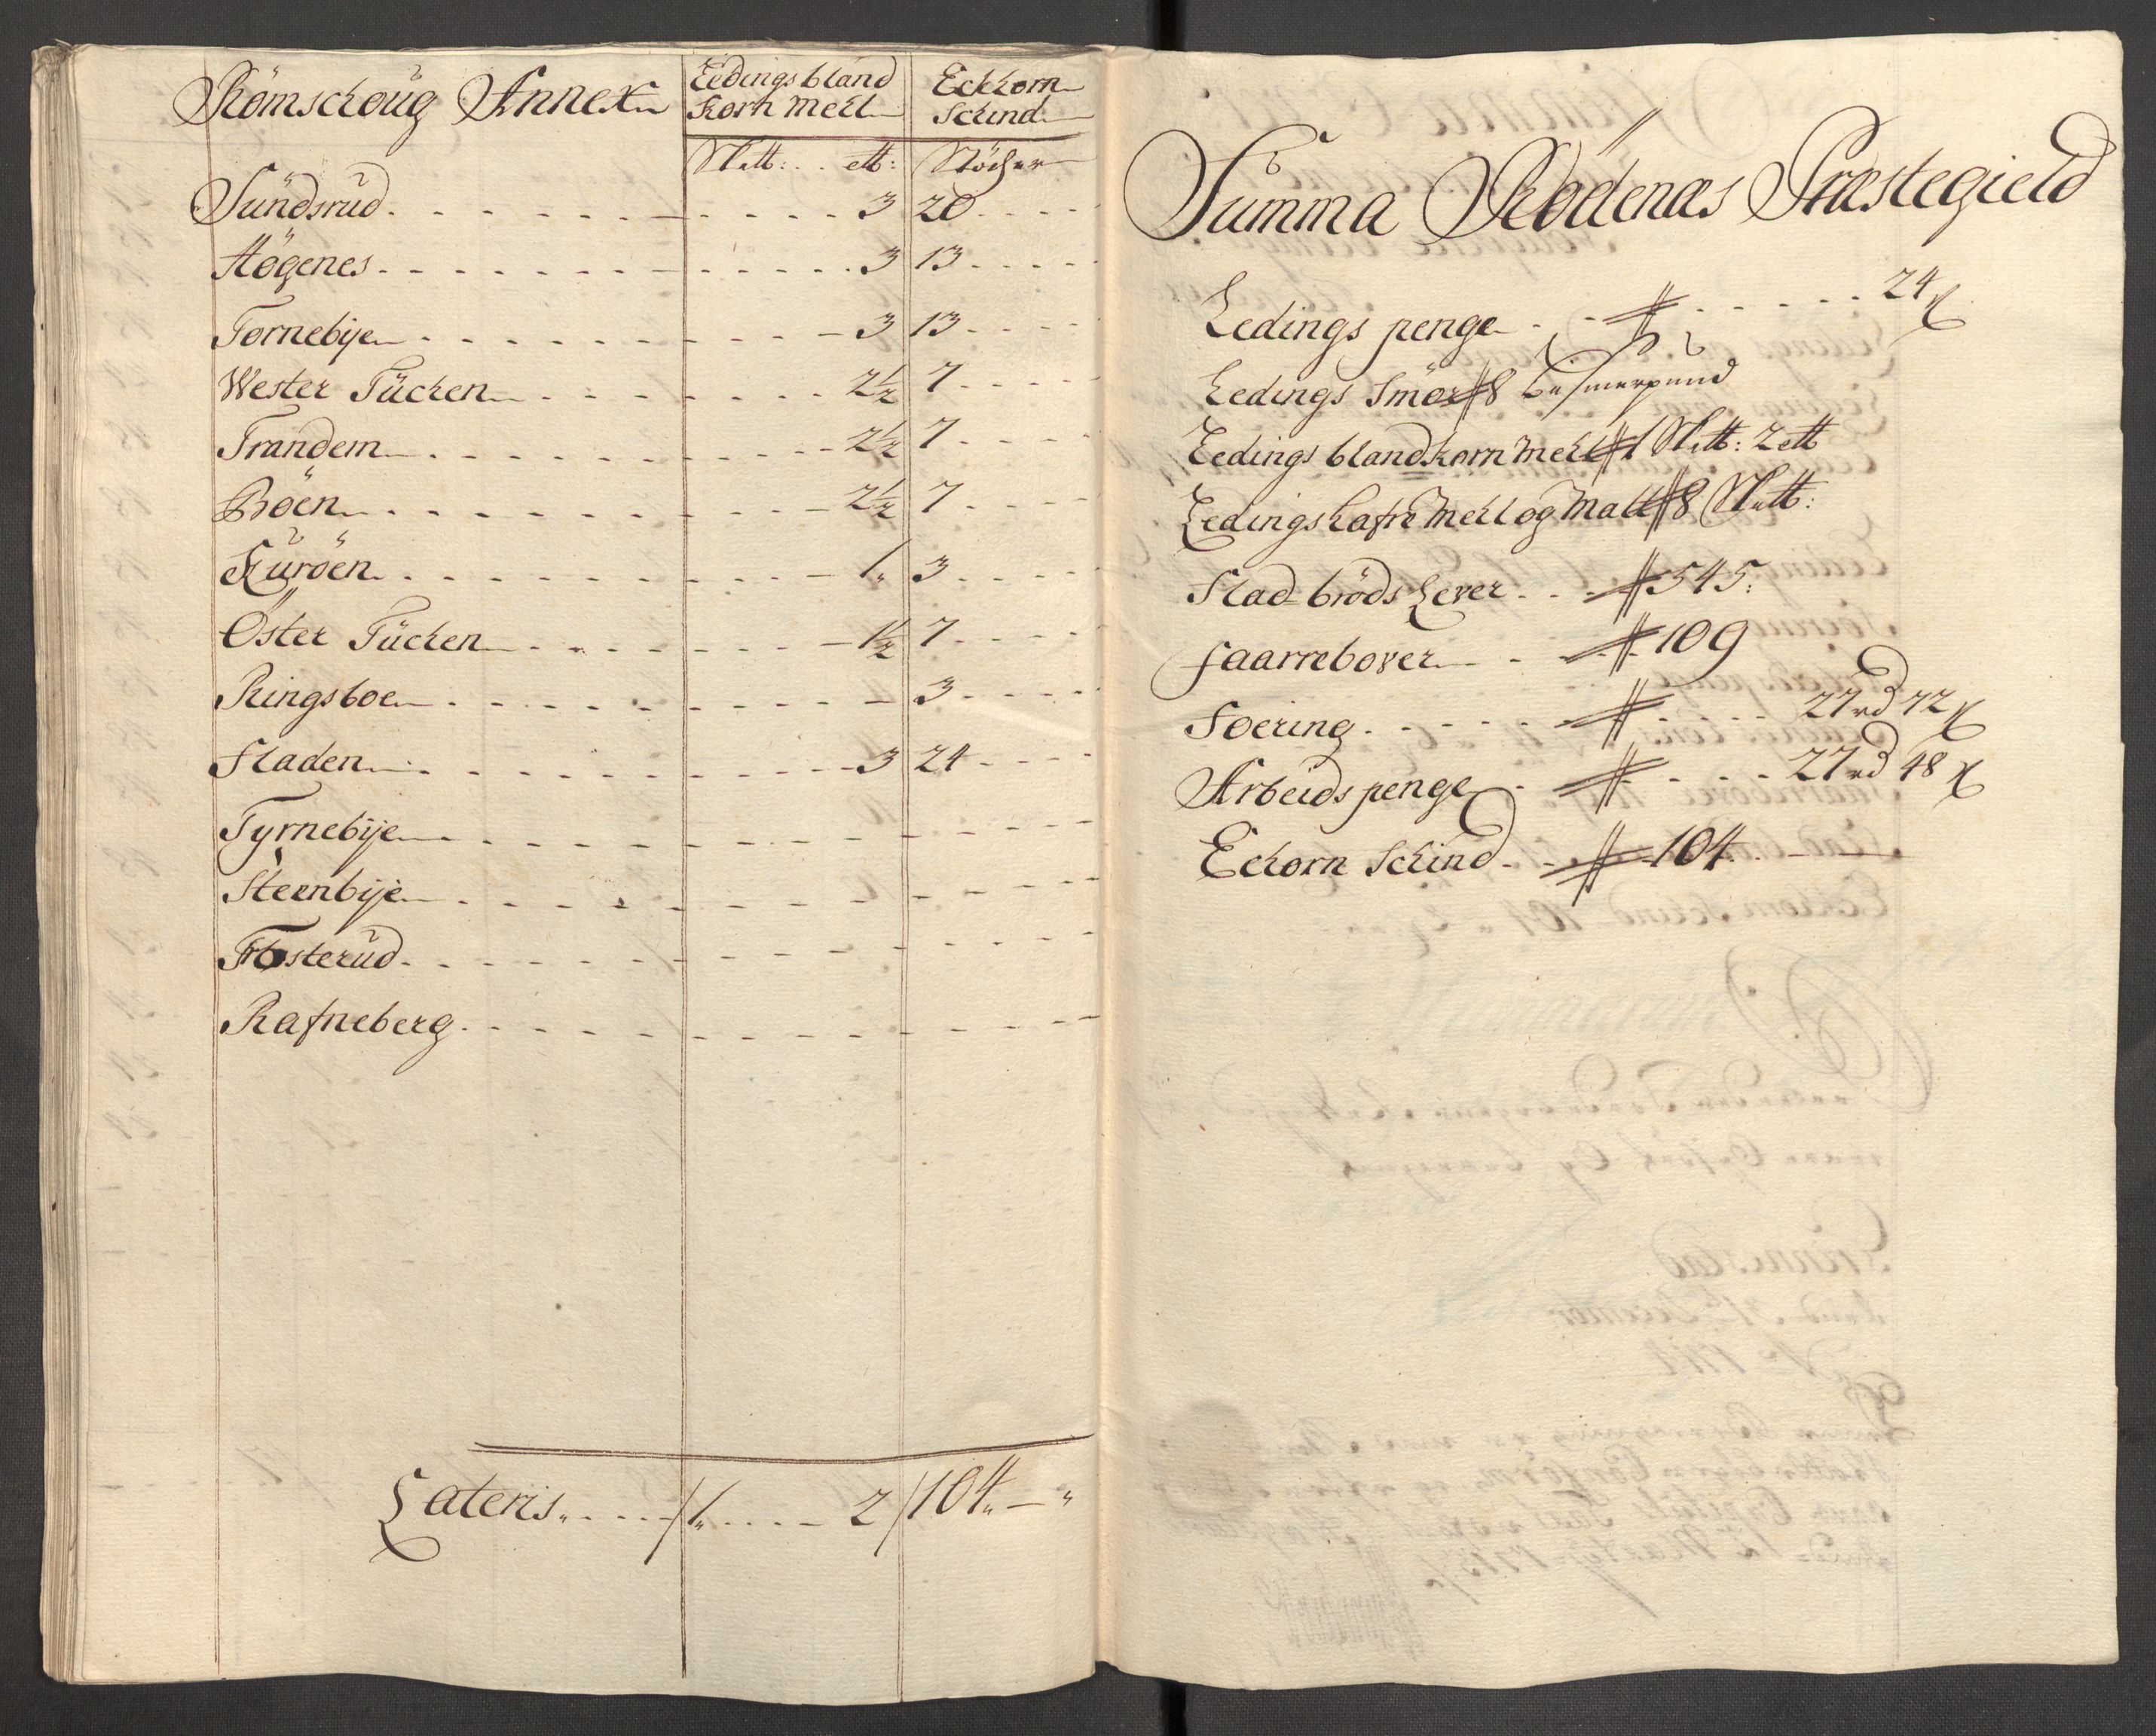 Römschoug Annex
Ledings bland
Korn Meel
Eckhorn
Schind
Sk℔: ℔: Stöcher
Sundsrud 3 20
Högenes 3 13
Tornebÿe 3 13
Wester Tüchen 2½ 7
Trandem 2½ 7
Bröen 2½ 7
Kuröen 1 3
Öster Tüchen 1½ 7
Ringsboe 3
Staden 3 24
Tyrnebÿe
Steenbÿe
Fosterud
Rafneberg
Lateris 1 2 104
Summa Rödenæs Præstegield
Ledings penge 24
Ledings Smör 8 bismerpund
Ledings bland Korn Meel 1 Sk℔: 2 ℔
Ledings hafre Meel og Malt 8 Sk℔:
Stad bröds Lever 545
faarrebover 109
Foering 27 rd 72
Arbeids penge 27 rd 48
Echorn Schind 104